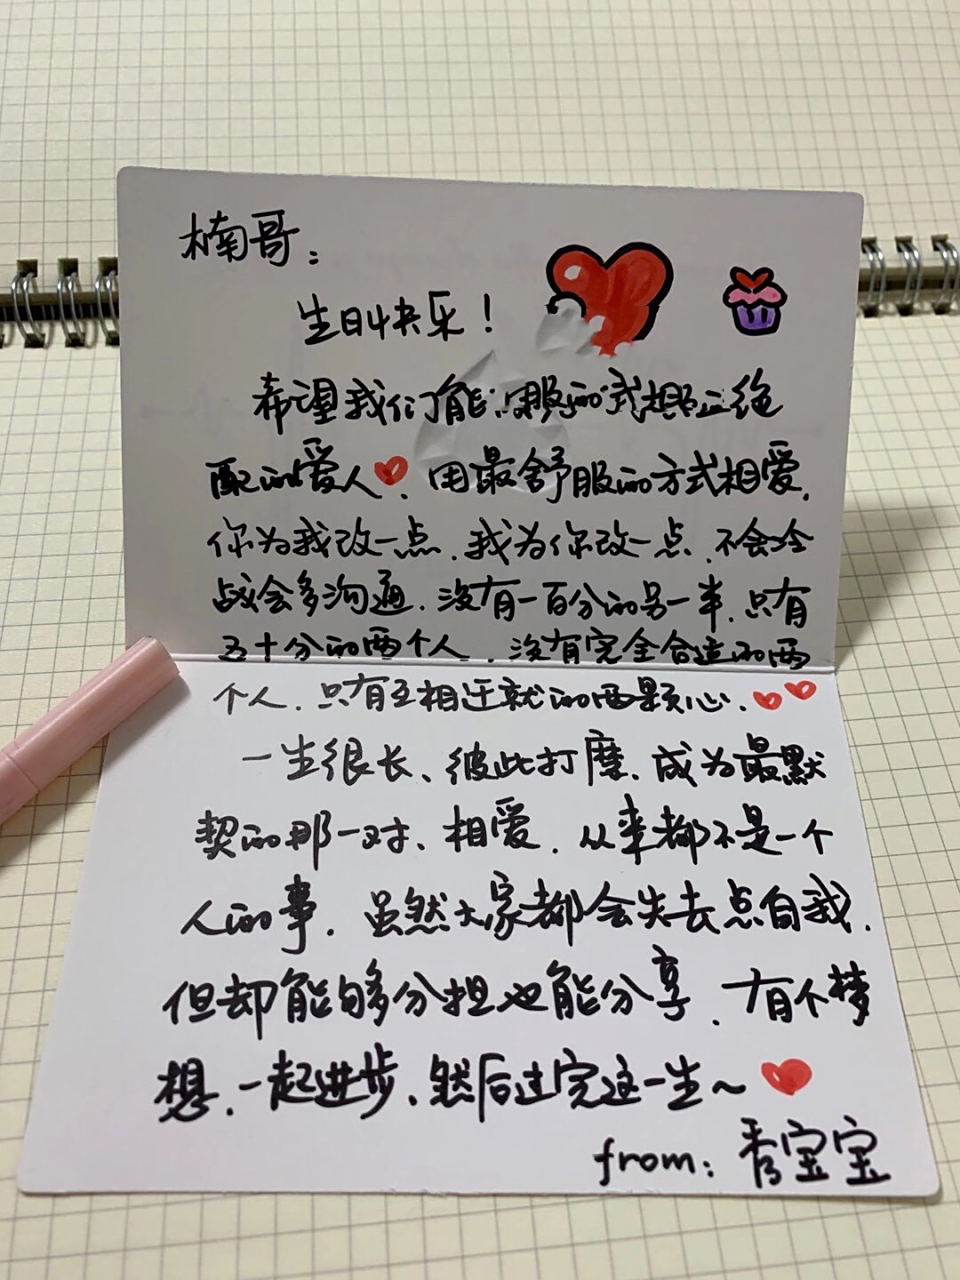 楠哥：
生日快乐！
希望我们能
配的爱人，用最舒服的方式相爱，
你为我改一点，我为你改一点，不会冷
战会多沟通，没有一百分的另一半，只有
五十分的两个人，没有完全合适的两
个人，只有互相迁就的两颗心，
一生很长、彼此打磨，成为最默
契的那一对、相爱，从来都不是一个
人的事，虽然大家都会失去点自我，
但却能够分担也能分享，有个梦
想，一起进步、然后过完这一生～
from：秀宝宝